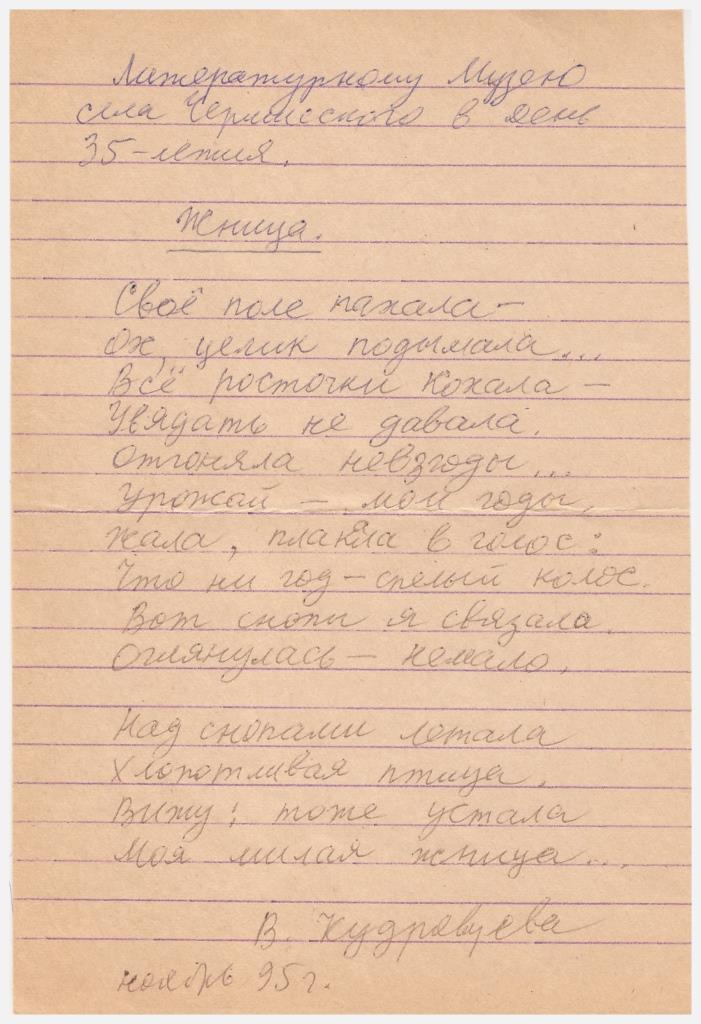 Литературному Музею
села Черлисского в день
35-летия.
Жница.
Своё поле пахала –
Ох, целик подымала...
Всё росточки кохала –
Увядать не давала.
Отгоняла невзгоды...
Урожай – мои годы,
Жала, плакала в голос:
Что ни год – спелый колос.
Вот снопы я связала.
Оглянулась – немало.
Над снопами летала
Хлопотливая птица.
Вижу: тоже устала
Моя милая жница...
В. Кудрявцева
ноябрь 95 г.